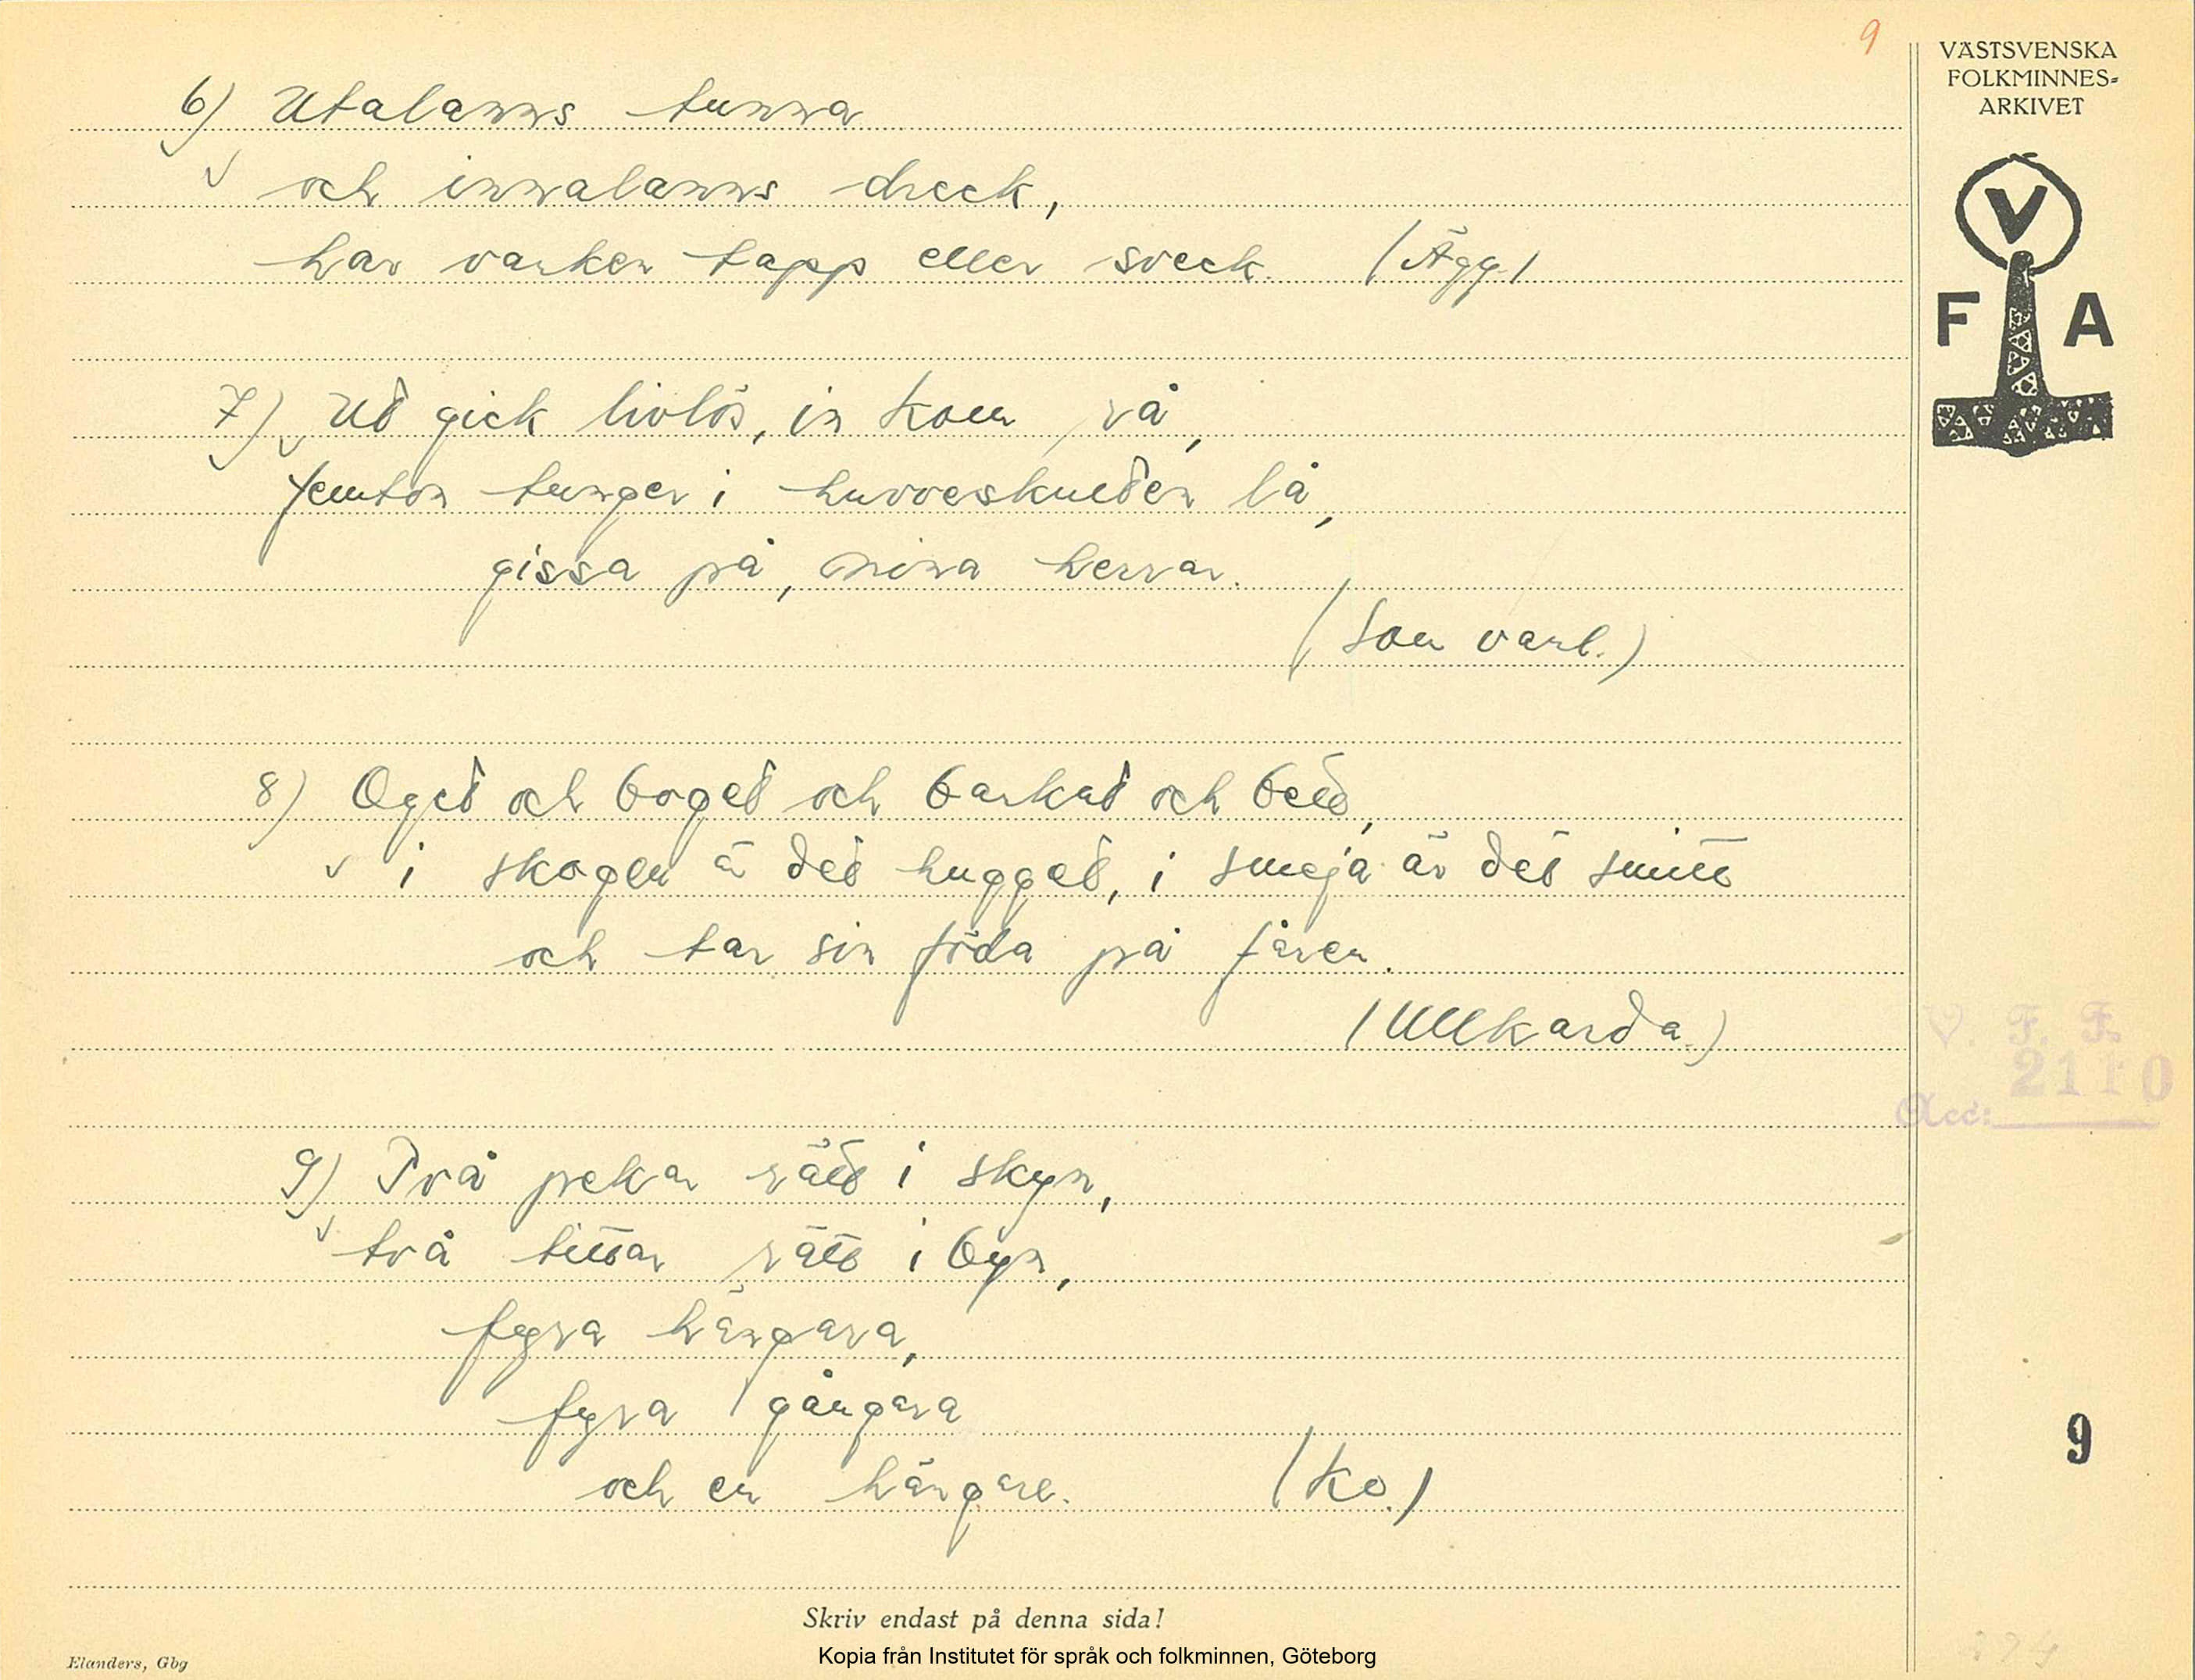 9
VÄSTSVENSKA
FOLKMINNES-
ARKIVET
V
F A
6) Utalanns tunna
och innalanns dreck,
har varken tapp eller sveck. (Ägg.)
7) Ut gick livlös, in kom rå,
femton tunger i huvveskuden lå,
gissa på, mina herrar.
(Som vanl.)
8) Oget och boget och barkat och bett,
i skogen är det hugget, i smeja är det smitt
och tar sin föda på fåren.
(Ullkarda.)
9) Två pekar rätt i skyn,
två tittar rätt i byn,
fyra hängara,
fyra gångara
och en hängare. (Ko.)
V. F. F.
2110
Acc:
9
Skriv endast på denna sida!
Kopia från Institutet för språk och folkminnen, Göteborg
Elanders, Gbg